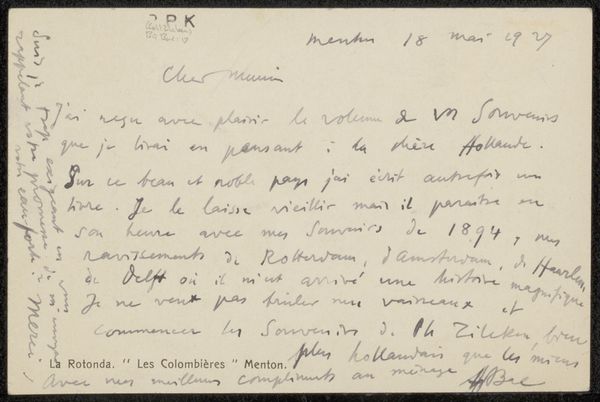 RPK
Menton 18 mai 1927
Cher
J'ai reçu avec plaisir le volume de vos Souvenirs
que je lirai en pensant à la chère Hollande.
Sur ce beau et noble pays j'ai écrit autrefois un
livre. Je le laisse vieillir mais il paraitra en
son heure avec mes Souvenirs de 1894, mes
ravissements de Rotterdam, d'Amsterdam, de Haarlem
de Delft où il m'est arrivé une histoire magnifique
Je ne veux pas brûler mes vaisseaux et
commencer les Souvenirs de Ph Zilcken, bien
plus hollandais que les miens
avec mes meilleurs compliments au ménage
Bac
La Rotonda. " Les Colombières " Menton.
Suis-je trop exigeant en vous
rappelant votre promesse de m'envoyer
votre eau forte ? Merci,